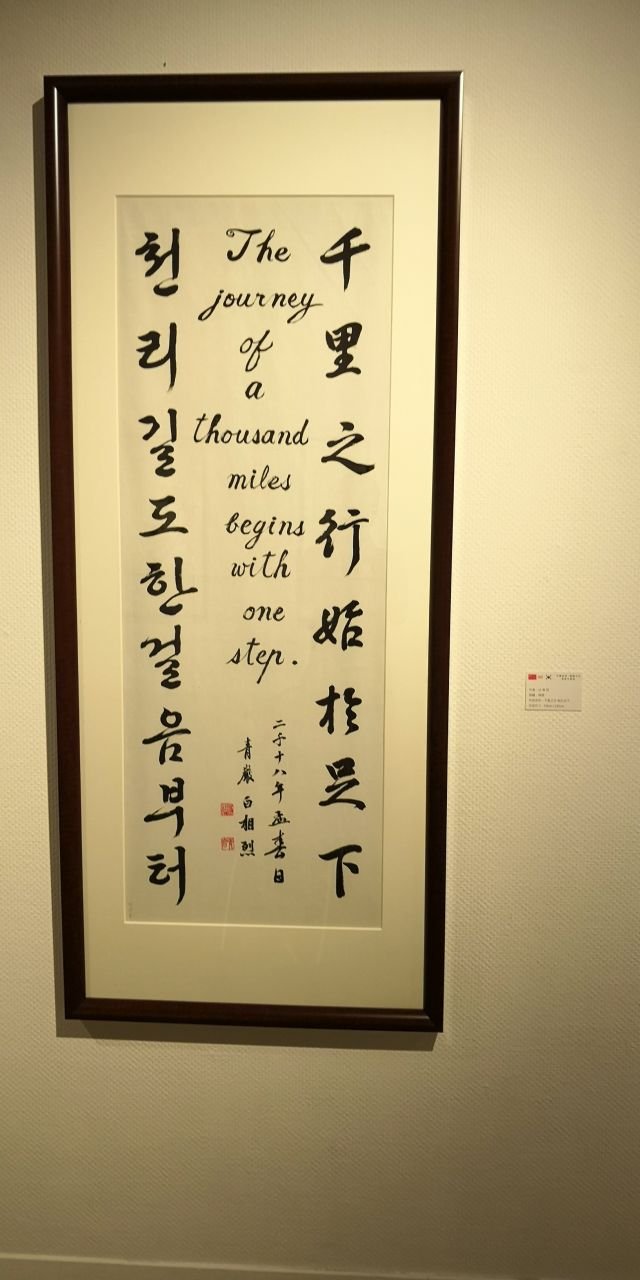 千里之行始於足下
The
journey
of
a
thousand
miles
begins
with
one
step.
二千十八年孟春日
青巖白相烈
천리길도한걸음부터